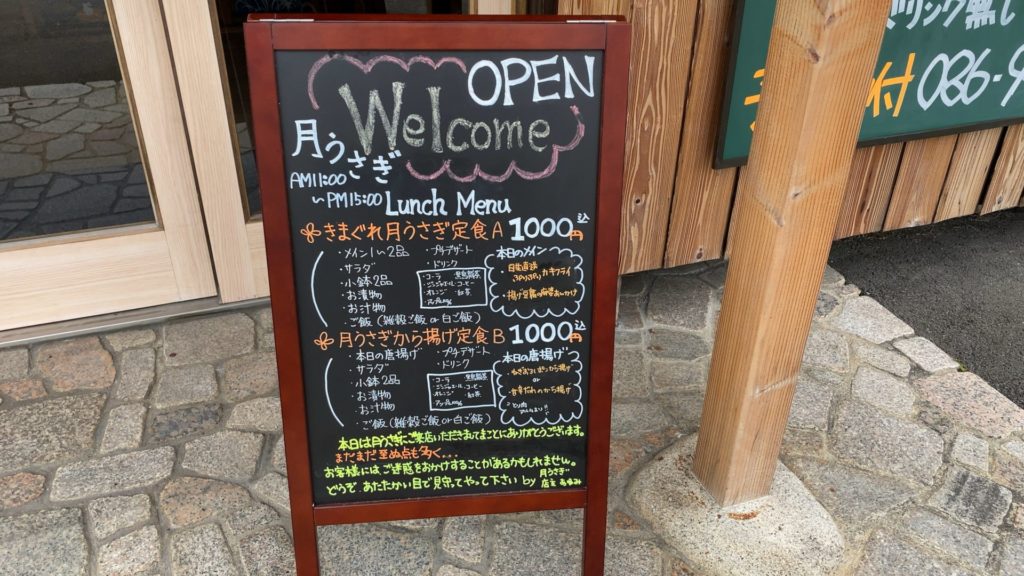 OPEN
Welcome
月うさぎ
AM11:00
～PM15:00
Lunch Menu
きまぐれ月うさぎ定食A 1000円込
・メイン1〜2品
・サラダ
・小鉢2品
・お漬物
・お汁物
・ご飯(雑穀ご飯or白ご飯)
・プチデザート
・ドリンク
・コーラ
・ジンジャエール・コーヒー
・オレンジ ・紅茶
本日のメイン
カキフライ
月うさぎから揚げ定食B 1000円込
・本日の唐揚げ
・サラダ
・小鉢2品
・お漬物
・お汁物
・ご飯(雑穀ご飯or白ご飯)
・プチデザート
・ドリンク
・コーラ
・ジンジャエール・コーヒー
・オレンジ ・紅茶
本日の唐揚げ
or
から揚げ
まだまだ至ぬ点も多く...
お客様にはご迷惑をおかけすることがあるかもしれません。
どうぞ あたたかい目で見守ってやって下さい by
月うさぎ
店主 あゆみ
リンク無し
付 086-9